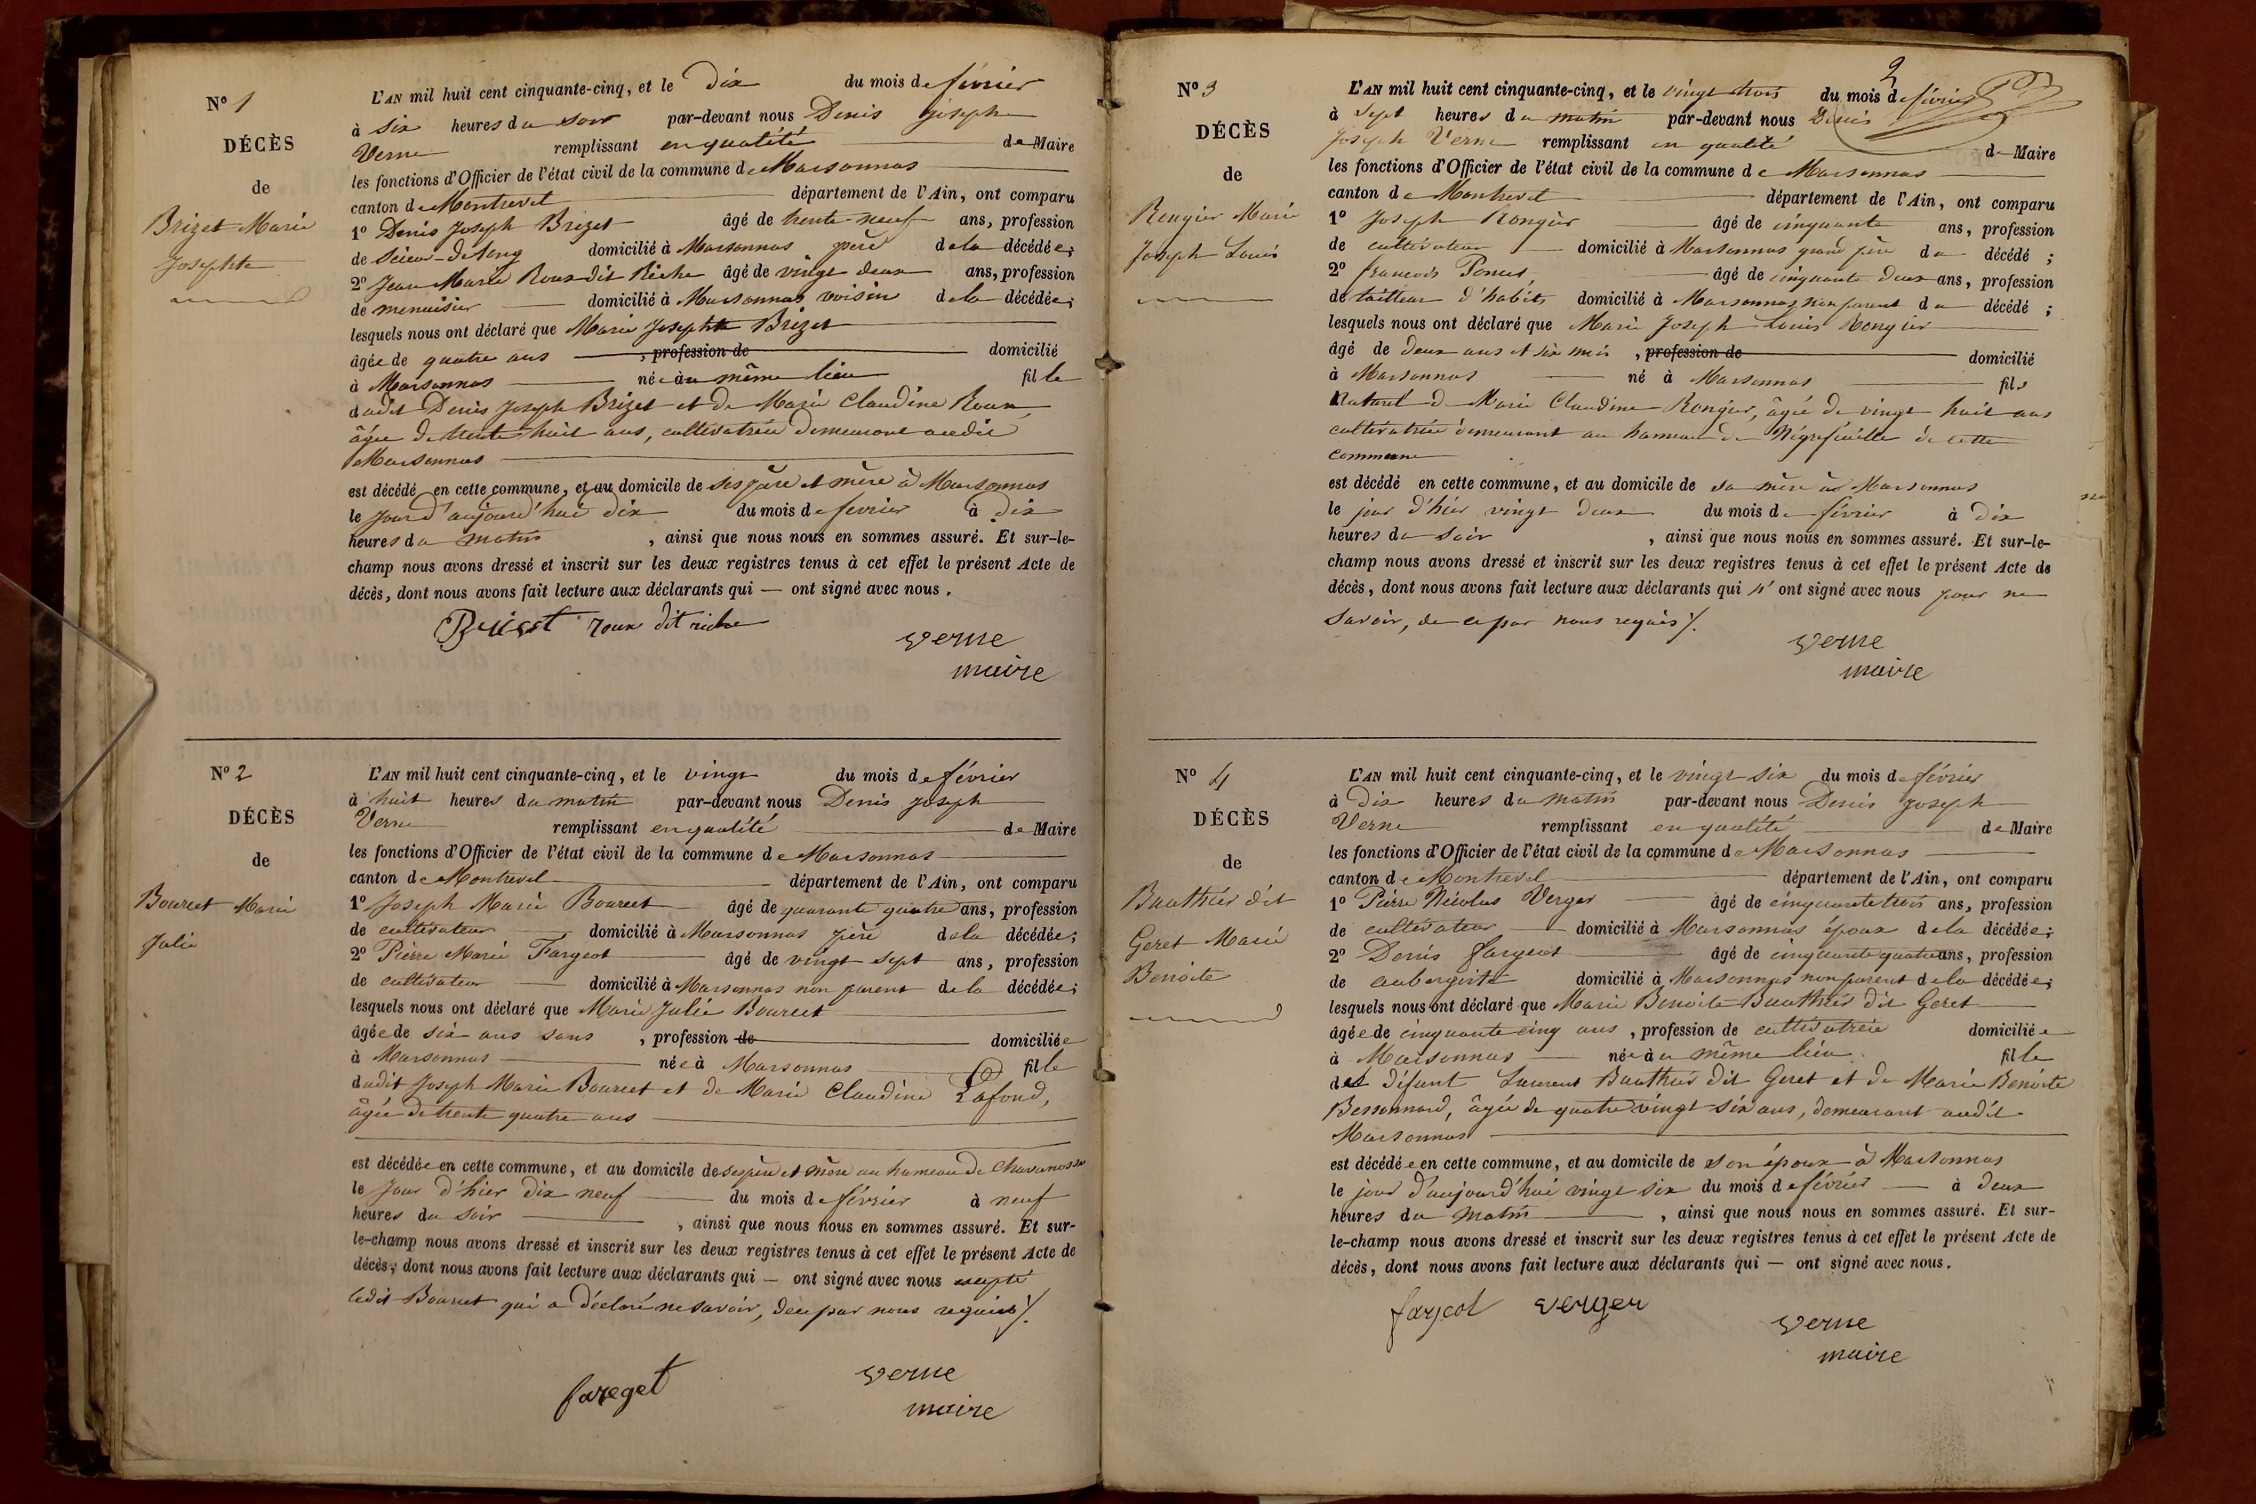 Nº 1
DÉCÈS
de
Brizet Marie
Josephte
L'AN mil huit cent cinquante-cinq, et le dix du mois de février
à six heures du soir par-devant nous Denis Joseph
Verne remplissant en qualité de Maire
les fonctions d'Officier de l'état civil de la commune de Marsonnas
canton de Montrevel département de l'Ain, ont comparu
1º Denis Joseph Brizet âgé de trente-neuf ans, profession
de scieur-de long domicilié à Marsonnas père de la décédée;
2º Jean Marie Roux dit Riche âgé de vingt deux ans, profession
de menuisier domicilié à Marsonnas voisin de la décédée;
lesquels nous ont déclaré que Marie Josephte Brizet
âgée de quatre ans , profession de domicilié
à Marsonnas née au même lieu fille
dudit Denis Joseph Brizet et de Marie Claudine Roux,
âgée de trente huit ans, cultivatrice demeurant audit
Marsonnas
est décédé en cette commune, et au domicile de ses père et mère à Marsonnas
le jour d'aujourd'hui dix du mois de février à dix
heures du matin , ainsi que nous nous en sommes assuré. Et sur-le-
champ nous avons dressé et inscrit sur les deux registres tenus à cet effet le présent Acte de
décès, dont nous avons fait lecture aux déclarants qui — ont signé avec nous.
Brizet roux dit riche
verne
maire
Nº 2
DÉCÈS
de
Bourcet Marie
Julie
L'AN mil huit cent cinquante-cinq, et le vingt du mois de février
à huit heures du matin par-devant nous Denis Joseph
Verne remplissant en qualité de Maire
les fonctions d'Officier de l'état civil de la commune de Marsonnas
canton de Montrevel département de l'Ain, ont comparu
1º Joseph Marie Bourcet âgé de quarante quatre ans, profession
de cultivateur domicilié à Marsonnas père de la décédée;
2º Pierre Marie Fargeot âgé de vingt sept ans, profession
de cultivateur domicilié à Marsonnas non parent de la décédée;
lesquels nous ont déclaré que Marie Julie Bourcet
âgée de six ans sans , profession de domiciliée
à Marsonnas née à Marsonnas fille
dudit Joseph Marie Bourcet et de Marie Claudine Lafond,
âgée de trente quatre ans
est décédée en cette commune, et au domicile de ses père et mère au hameau de Chavanosse
le jour d'hier dix neuf du mois de février à neuf
heures du soir , ainsi que nous nous en sommes assuré. Et sur-
le-champ nous avons dressé et inscrit sur les deux registres tenus à cet effet le présent Acte de
décès, dont nous avons fait lecture aux déclarants qui — ont signé avec nous excepté
ledit Bourcet qui a déclaré ne savoir, de ce par nous requis ./.
fargeot
verne
maire
2
Nº 3
DÉCÈS
de
Rongier Marie
Joseph Louis
L'AN mil huit cent cinquante-cinq, et le vingt trois du mois de février
à sept heures du matin par-devant nous Denis
Joseph Verne remplissant en qualité de Maire
les fonctions d'Officier de l'état civil de la commune de Marsonnas
canton de Montrevel département de l'Ain, ont comparu
1º Joseph Rongier âgé de cinquante ans, profession
de cultivateur domicilié à Marsonnas grand père du décédé;
2º francois Poncet âgé de cinquante deux ans, profession
de tailleur d'habits domicilié à Marsonnas, non parent du décédé;
lesquels nous ont déclaré que Marie Joseph Louis Rongier
âgé de deux ans et six mois , profession de domicilié
à Marsonnas né à Marsonnas fils
naturel de Marie Claudine Rongier, âgée de vingt huit ans
cultivatrice demeurant au hameau de Négrefeuille de cette
commune
est décédé en cette commune, et au domicile de sa mère à Marsonnas
le jour d'hier vingt deux du mois de février à dix
heures du soir , ainsi que nous nous en sommes assuré. Et sur-le-
champ nous avons dressé et inscrit sur les deux registres tenus à cet effet le présent Acte de
décès, dont nous avons fait lecture aux déclarants qui n'ont signé avec nous pour ne
savoir, de ce par nous requis ./.
verne
maire
Nº 4
DÉCÈS
de
Bauthier dit
Geret Marie
Benoite
L'AN mil huit cent cinquante-cinq, et le vingt six du mois de février
à dix heures du matin par-devant nous Denis Joseph
Verne remplissant en qualité de Maire
les fonctions d'Officier de l'état civil de la commune de Marsonnas
canton de Montrevel département de l'Ain, ont comparu
1º Pierre Nicolas Verger âgé de cinquante trois ans, profession
de cultivateur domicilié à Marsonnas époux de la décédée;
2º Denis fargeot âgé de cinquante quatre ans, profession
de aubergiste domicilié à Marsonnas non parent de la décédée;
lesquels nous ont déclaré que Marie Benoite Bauthier dit Geret
âgée de cinquante cinq ans , profession de cultivatrice domiciliée
à Marsonnas née au même lieu fille
de défunt Laurent Bauthier dit Geret et de Marie Benoite
Bessonnard, âgée de quatre vingt six ans, demeurant audit
Marsonnas
est décédée en cette commune, et au domicile de son époux à Marsonnas
le jour d'aujourd'hui vingt six du mois de février à deux
heures du matin , ainsi que nous nous en sommes assuré. Et sur-
le-champ nous avons dressé et inscrit sur les deux registres tenus à cet effet le présent Acte de
décès, dont nous avons fait lecture aux déclarants qui — ont signé avec nous.
fargeot verger
verne
maire